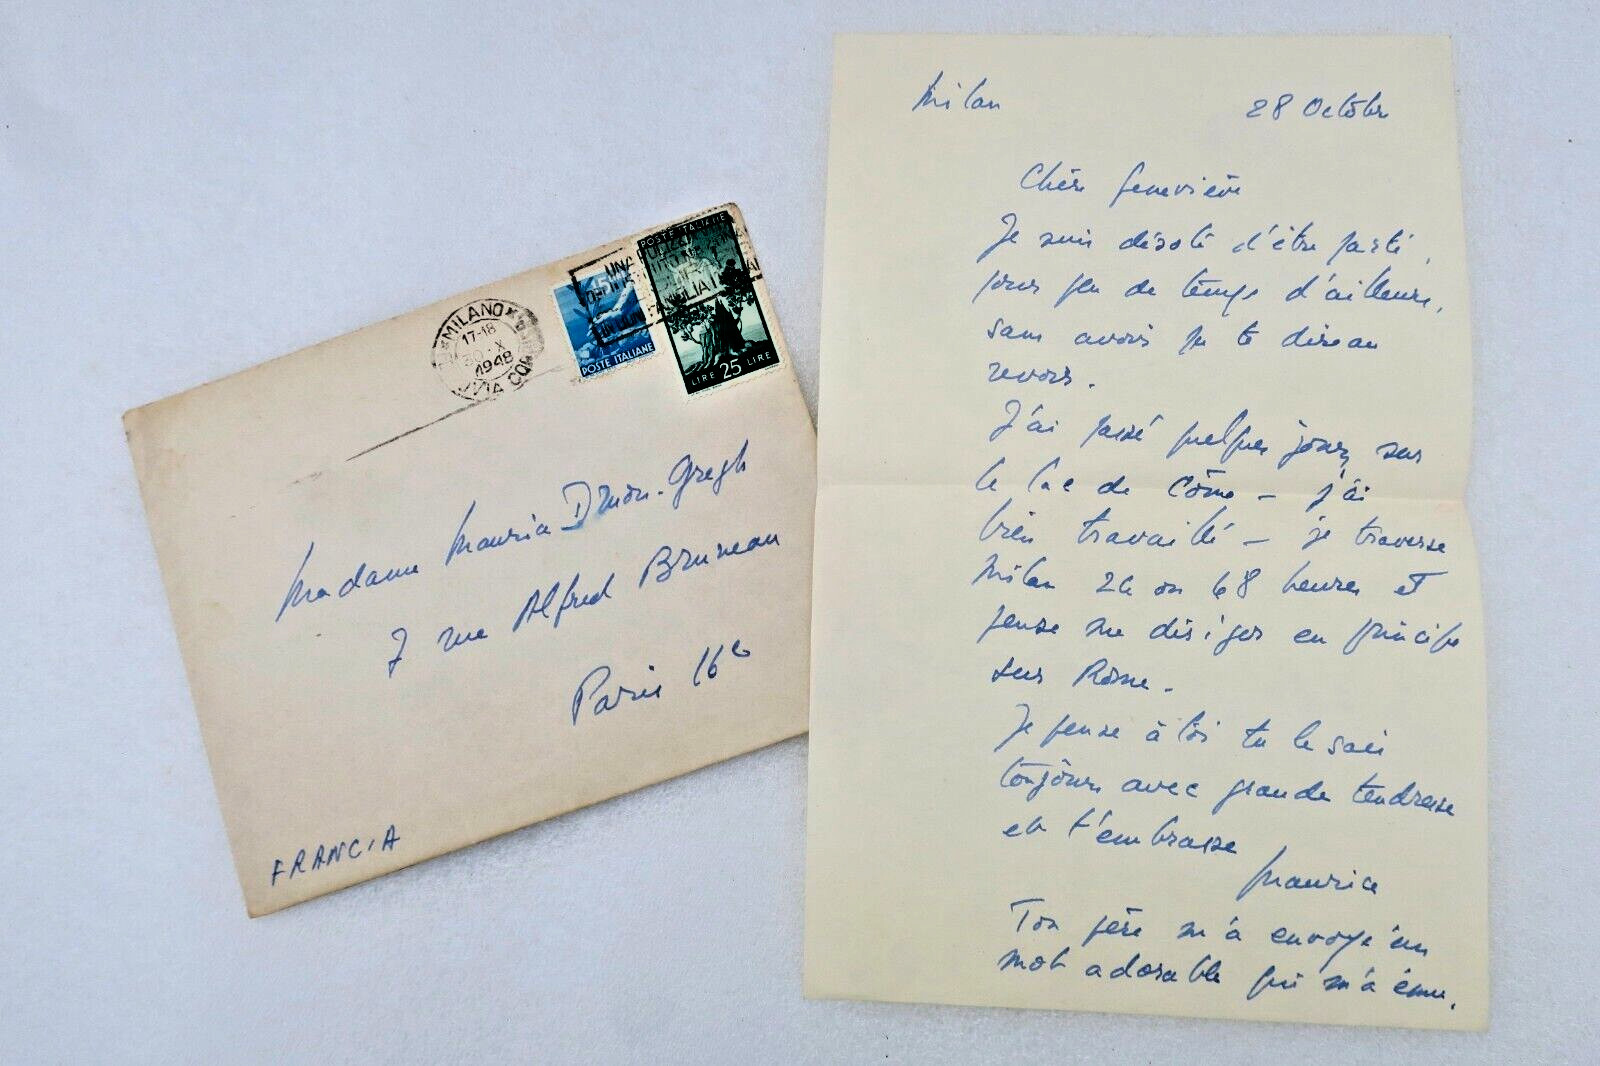 MILANO
17-18
30.X
1948
POSTE ITALIANE
POSTE ITALIANE
LIRE 25 LIRE
Madame Maurice Druon-Gregh
7 rue Alfred Bruneau
Paris 16e
FRANCIA
Milan 28 Octobre
Chère Geneviève
Je suis désolé d'être parti,
pour peu de temps d'ailleurs,
sans avoir pu te dire au
revoir.
J'ai passé quelques jours sur
le lac de Côme - j'ai
bien travaillé - je traverse
Milan 24 ou 48 heures et
pense me diriger en principe
sur Rome.
Je pense à toi tu le sais
toujours avec grande tendresse
et t'embrasse
Maurice
Ton père m'a envoyé un
mot adorable qui m'a ému.